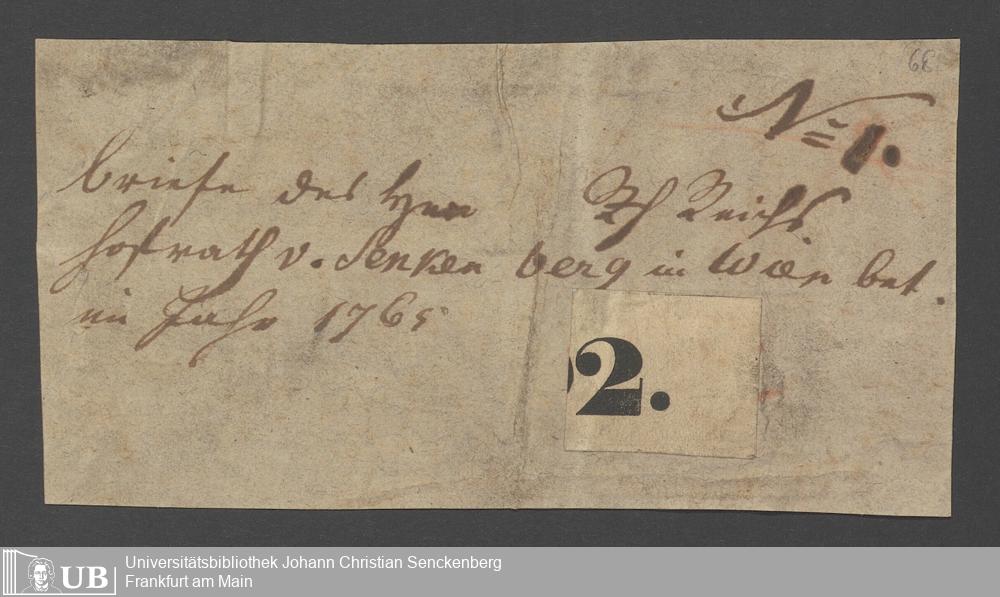 68
No = 1.
briefe des Herrn Rh Reichs
hofrath v. Senken berg in Wien bet.
im Jahr 1765
2.
UB
Universitätsbibliothek Johann Christian Senckenberg
Frankfurt am Main